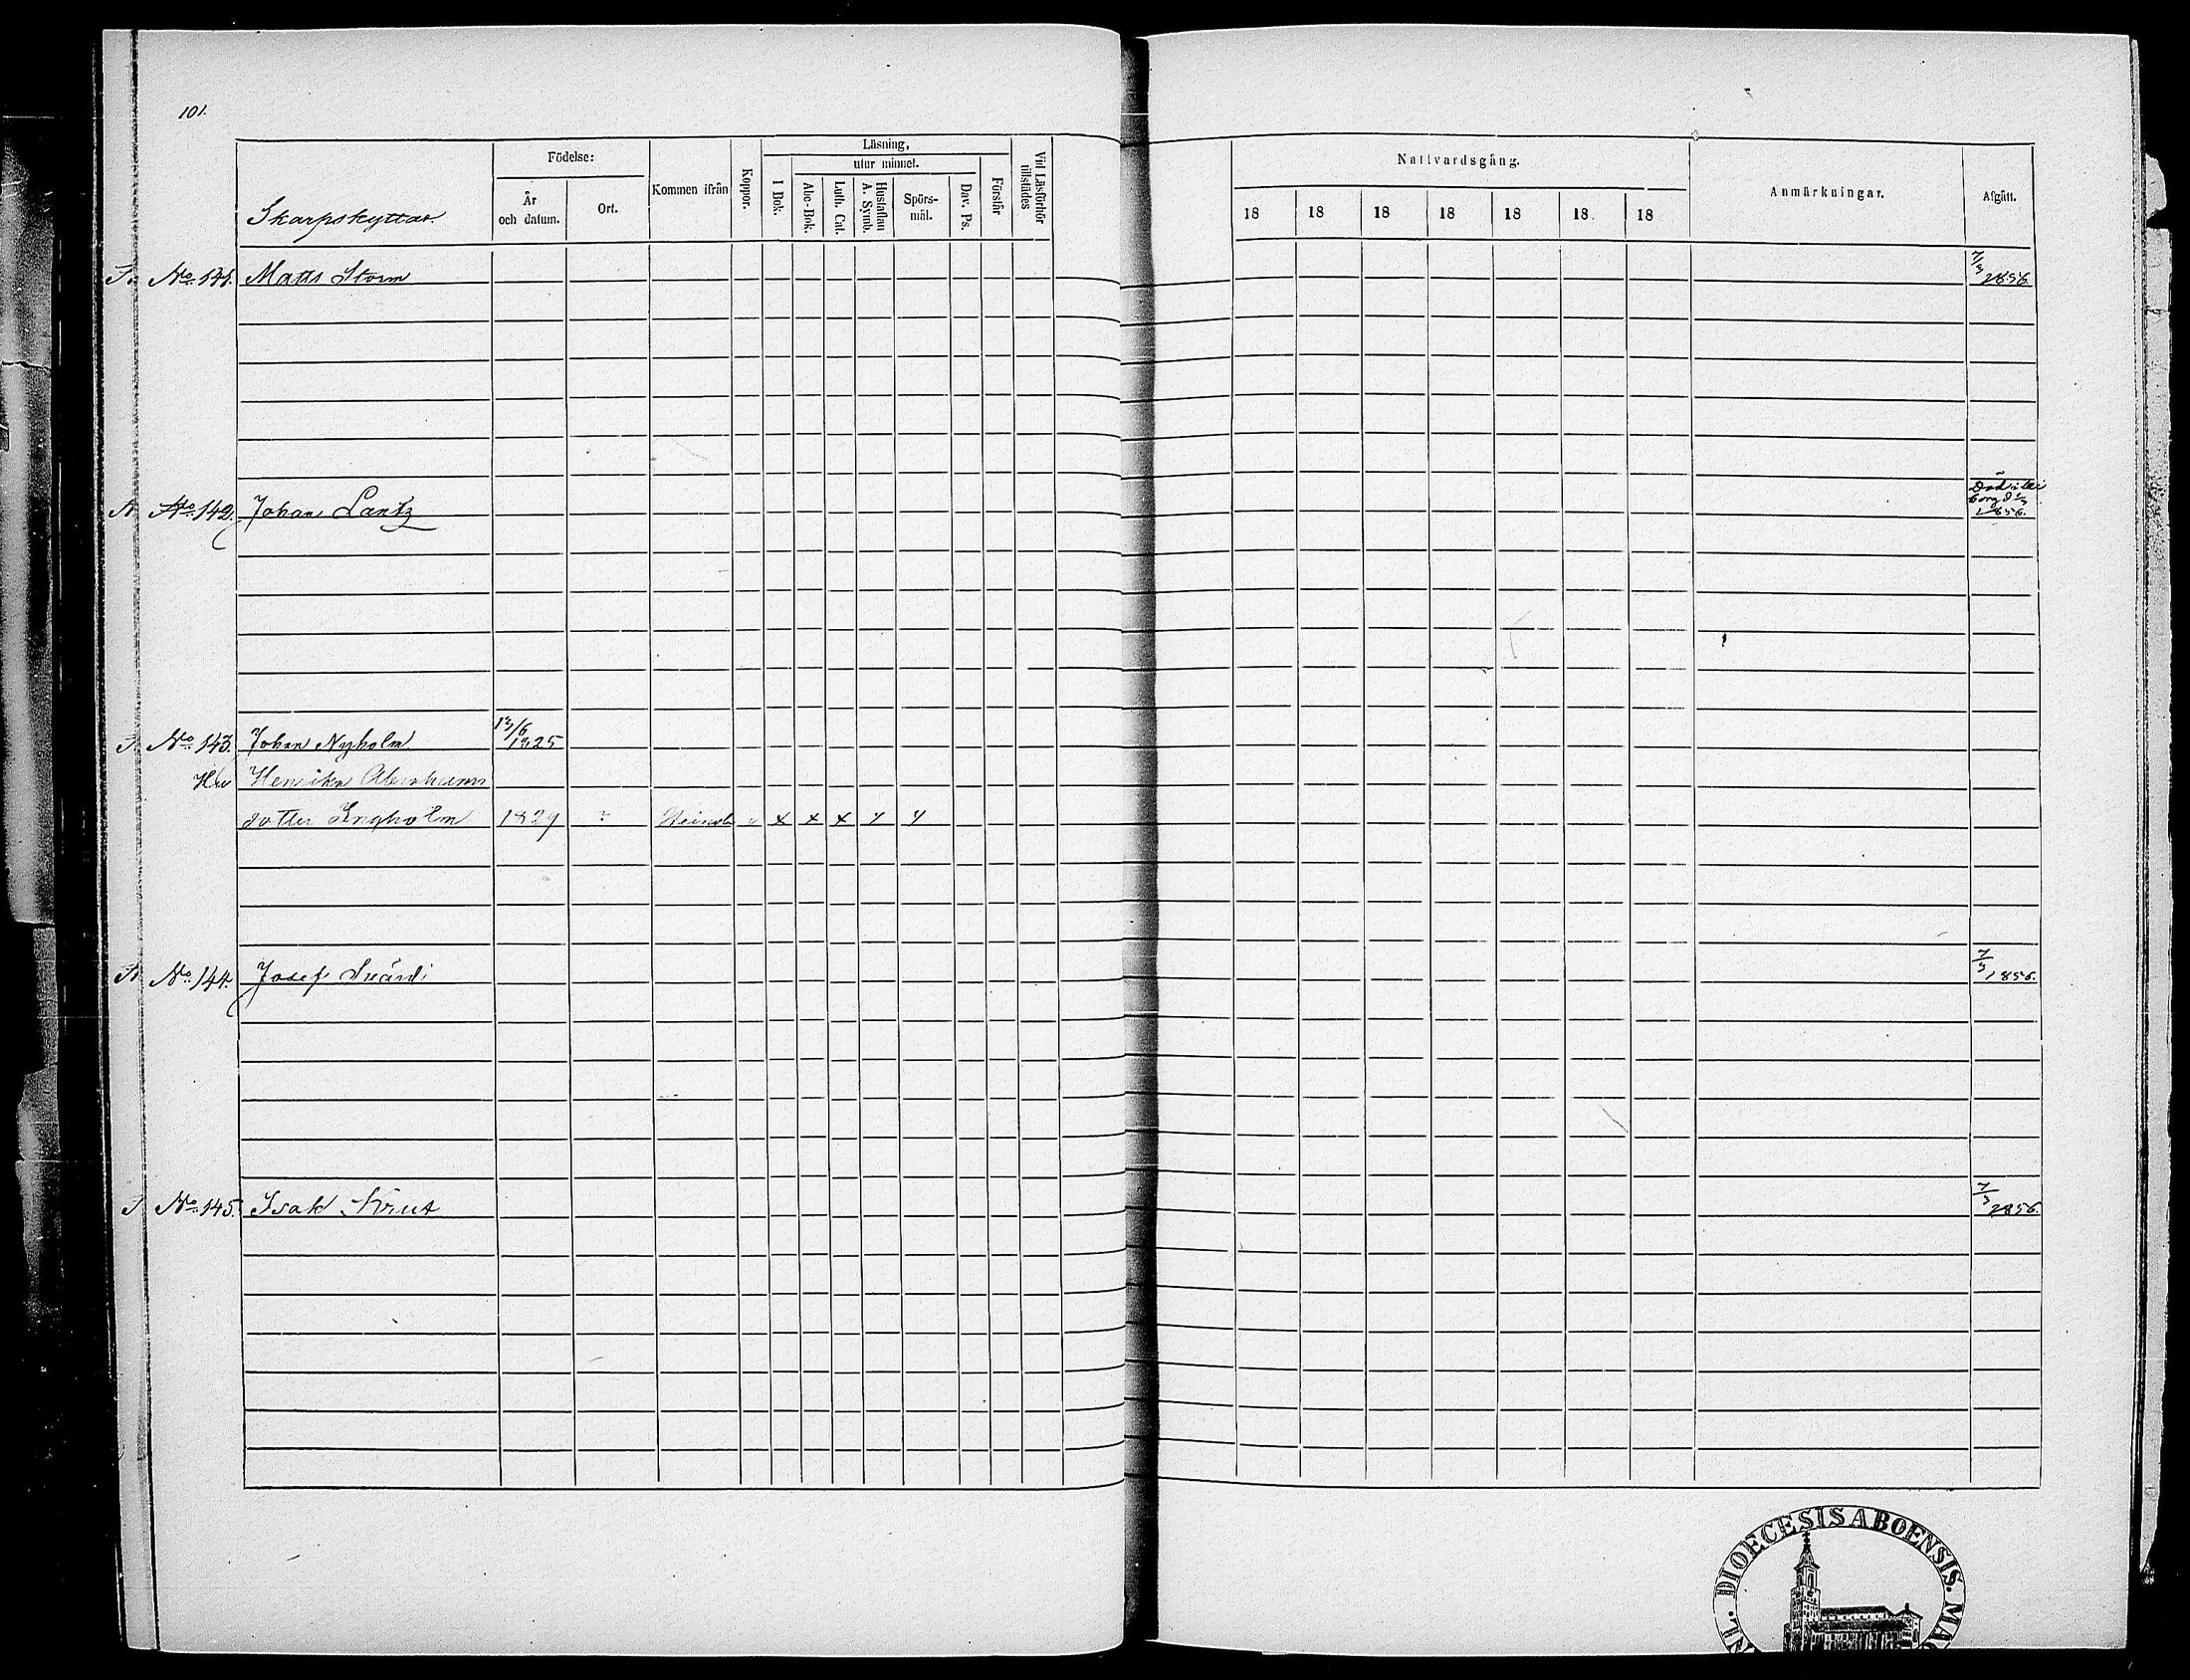 101.
Födelse:
Läsning,
utur minnet.
Nattvardsgång.
Skarpskyttar.
År och datum.
Ort.
Kommen ifrån
Koppor.
I Bok.
Abc-Bok.
Luth. Cat.
Hustaflan A. Symb.
Spörs-mål.
Dav. Ps.
Förstår
Vid Läsförhör tillstädes
18 18 18 18 18 18. 18
Anmärkningar.
Afgått.
No. 141. Matts Storm 7/3 1856.
No. 142. Johan Lantz Död 1856.
No. 143. Johan Nyholm 13/6 1825
Hu Henrika Abrahams
dotter Engholm 1829 ? x x x
No. 144. Josef Svärd 7/3 1856.
No. 145. Isak 7/3 1856.
DIOECESIS ABOENSIS. MAG
NL.